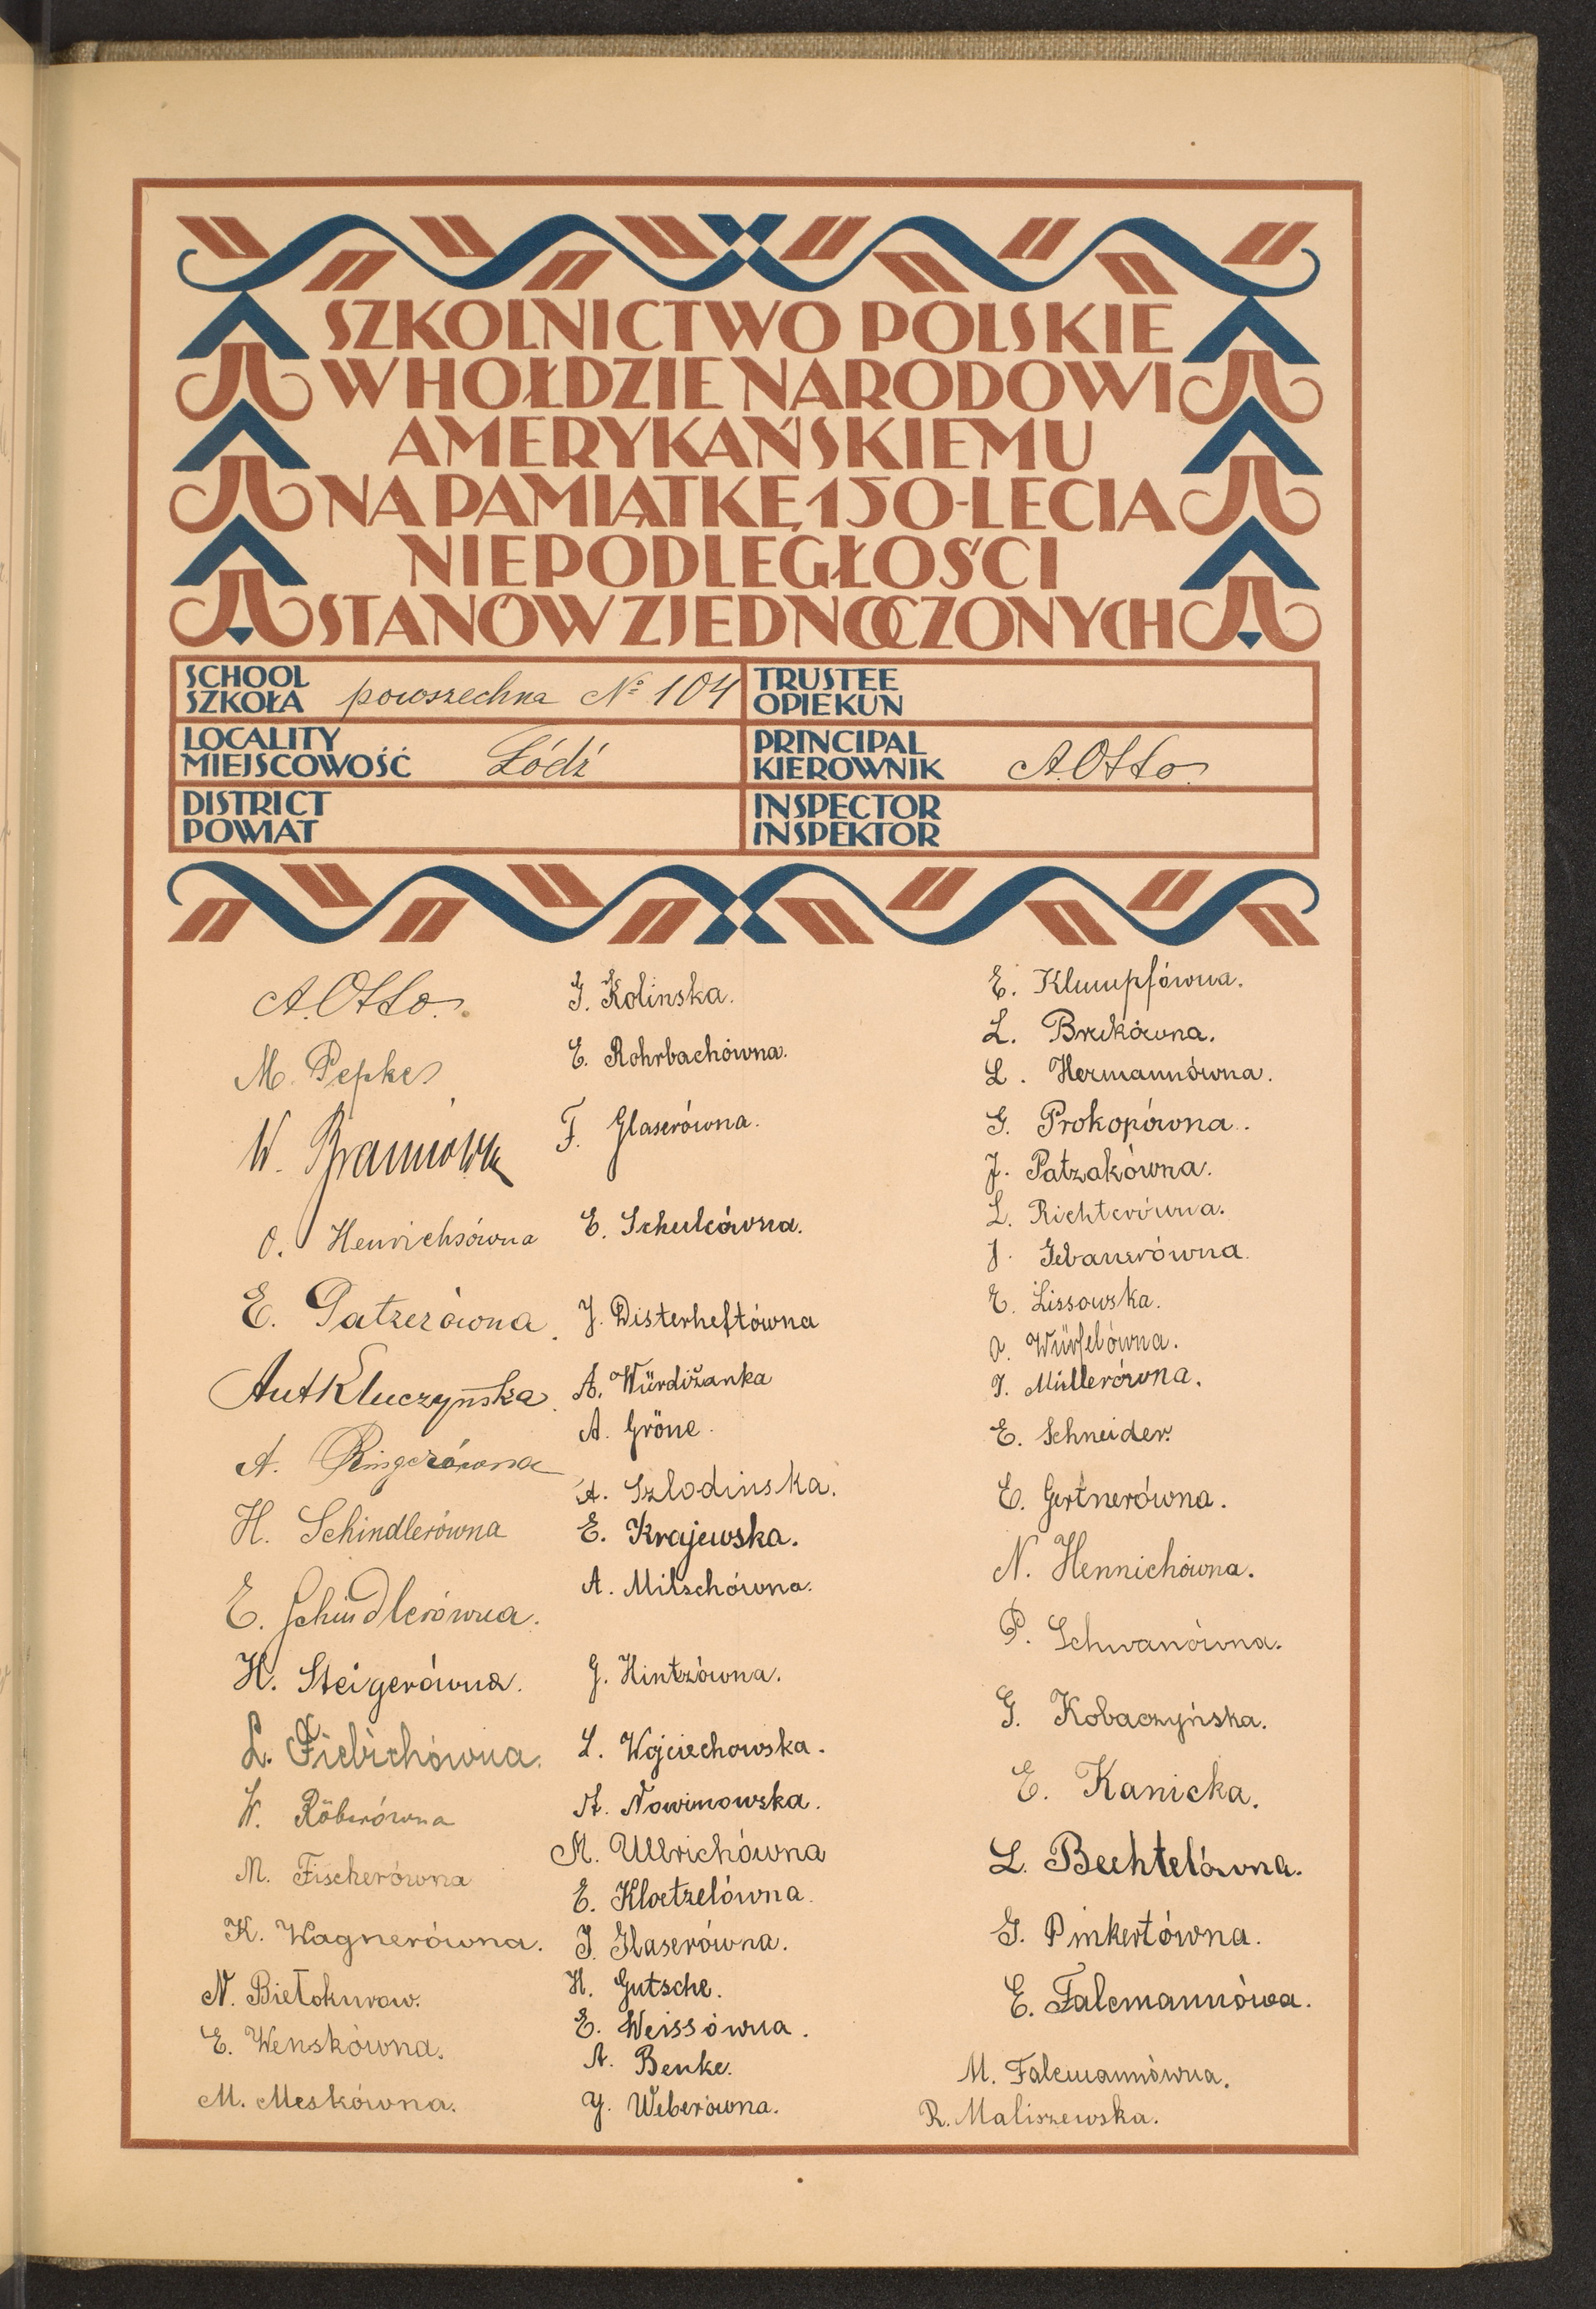 SZKOLNICTWO POLSKIE
W HOŁDZIE NARODOWI
AMERYKAŃSKIEMU
NA PAMIĄTKĘ 150-LECIA
NIEPODLEGŁOŚCI
STANÓW ZJEDNOCZONYCH
SCHOOL
SZKOŁA powszechna № 104
TRUSTEE
OPIEKUN
LOCALITY
MIEJSCOWOŚĆ Łódź
PRINCIPAL
KIEROWNIK A.Otto.
DISTRICT
POWIAT
INSPECTOR
INSPEKTOR
A.Otto.
M. Pepke
W.
O. Henrichsówna
E. Patzerówna.
Ant Kluczyńska.
A. Ringerówna
H. Schindlerówna
E. Schindlerówna.
H. Steigerówna.
L. Fiebichówna.
W. Röberówna
M. Fischerówna
K. Wagnerówna.
N. Biełokurow.
E. Wenskówna.
M. Meskówna.
J. Kolinska.
E. Rohrbachówna.
F. Glaserówna.
E. Schulcówna.
J. Disterheftówna
A. Würdižanka
A. Gröne.
A. Szlodinska.
E. Krajewska.
A. Milschówna.
G. Hintzówna.
L. Wojciechowska.
A. Nowinowska.
M. Ullrichówna
E. Kloetzelówna.
J. Glaserówna.
H. Gutsche.
E. Weissówna.
A. Benke.
Y. Weberówna.
E. Klumpfówna.
L. Brekówna.
L. Hermannówna.
G. Prokopówna.
J. Patzakówna.
L. Richterówna.
J. Gebauerówna.
E. Lissowska.
A. Würfelówna.
J. Müllerówna.
E. Schneider.
E. Gertnerówna.
N. Hennichówna.
P. Schwanówna.
G. Kobaczyńska.
E. Kanicka.
L. Bechtelówna.
G. Pinkertówna.
E. Falcmannówa.
M. Falcmannówna.
R. Maliszewska.